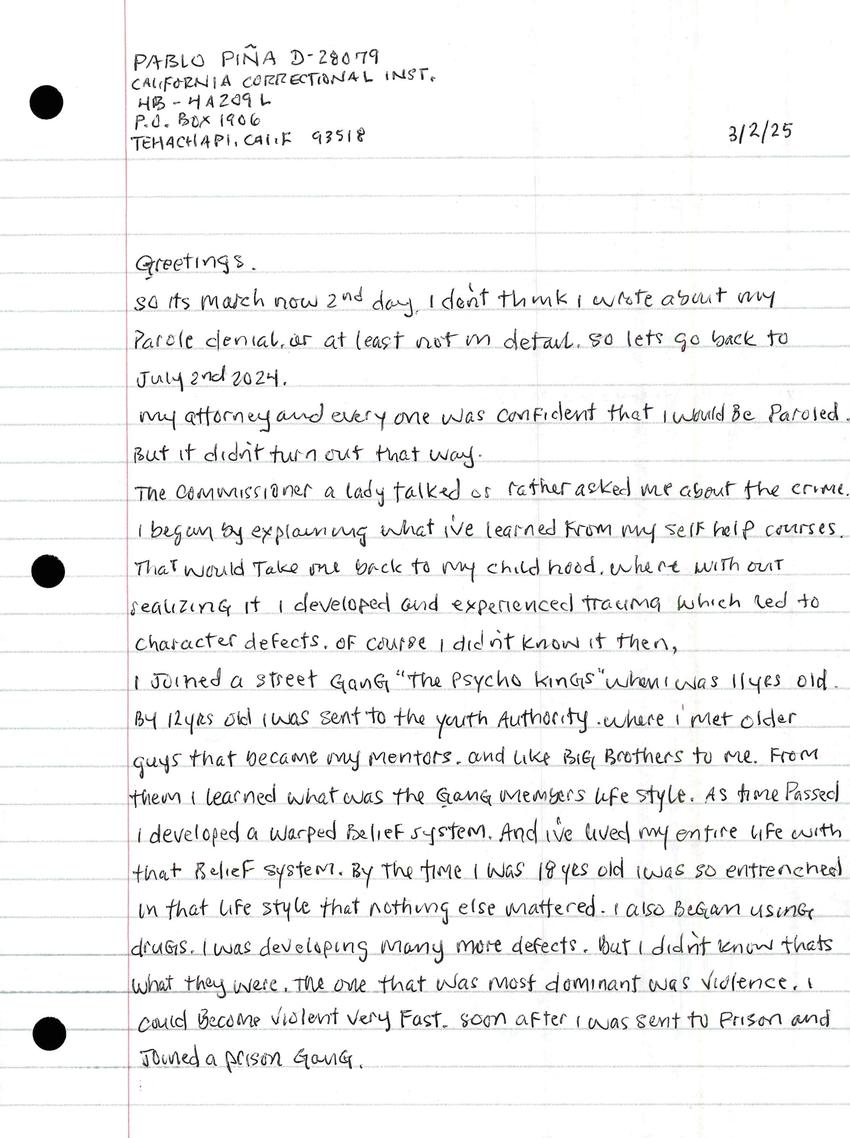 PABLO PIÑA D-28079
CALIFORNIA CORRECTIONAL INST.
HB - 4A209 L
P.O. BOX 1906
TEHACHAPI, CALIF 93518
3/2/25
Greetings.
So its March now 2nd day, I don't think I wrote about my
Parole denial, or at least not in detail. So lets go back to
July 2nd 2024.
My attorney and every one was confident that I would Be Paroled.
But it didn't turn out that way.
The Commissioner a lady talked or rather asked me about the crime.
I began by explaining what i've learned From my self help courses.
That would Take me back to my child hood. where with out
realizing it I developed and experienced trauma which led to
character defects. OF course I didn't know it then,
I Joined a street Gang "The Psycho Kings" when I was 11 yrs old.
By 12 yrs old I was sent to the youth Authority. where i met older
guys that became my mentors. and like Big Brothers to me. From
them I learned what was the Gang members life style. As time Passed
I developed a warped Belief system. And i've lived my entire life with
that Belief system. By The time I was 18 yes old I was so entrenched
in that life style that nothing else mattered. I also Began using
drugs. I was developing many more defects. But I didn't know thats
what they were. The one that was most dominant was violence. I
could Become violent very Fast. soon after I was sent to Prison and
Joined a prison Gang.